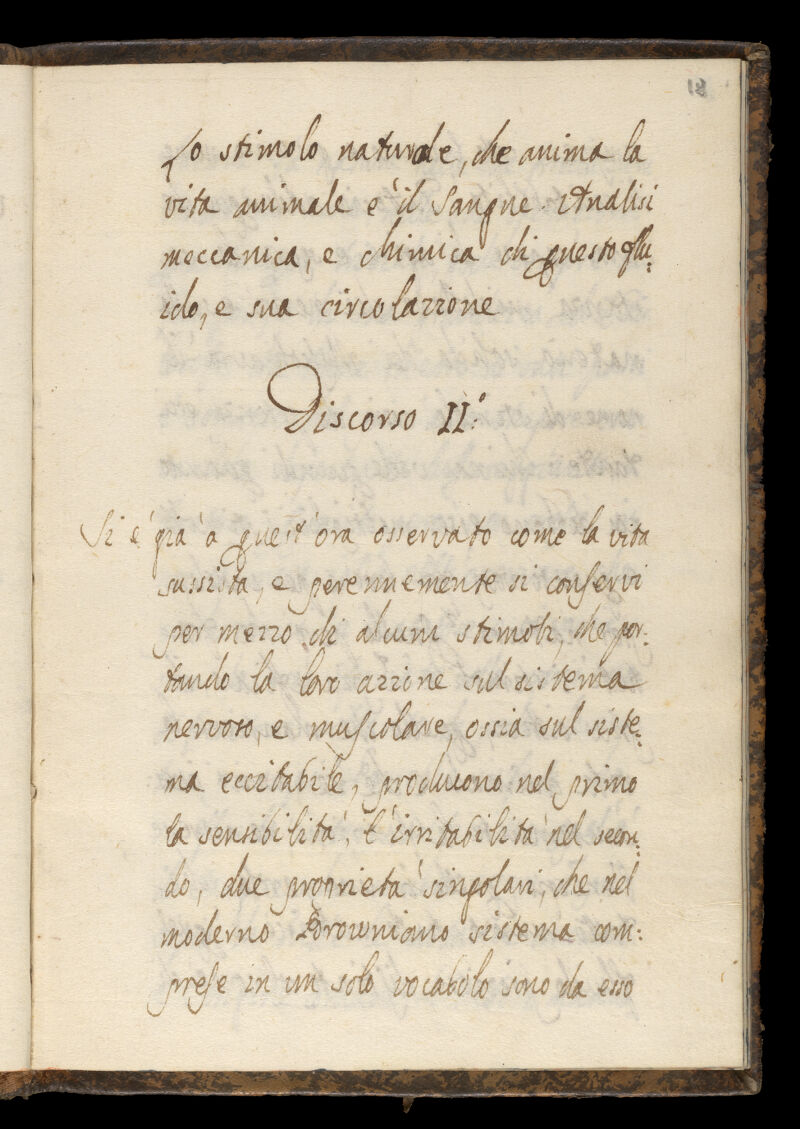 18
Lo stimolo naturale, che anima la
vita animale e' il Sangue. Analisi
meccanica, e chimica di questo flu:
ido, e sua circolazzione
Discorso II.º
Si e' già a quest'ora osservato come la vita
sussista, e perennemente si conservi
per mezzo di alcuni stimoli, che por:
tando la loro azzione sul sistema
nervoso, e muscolare, ossia sul siste:
ma eccitabile, producono nel primo
la sensibilità, l'irritabilità nel secon:
do, due proprietà singolari, che nel
moderno Browniano sistema com:
prese in un solo vocabolo sono da esso